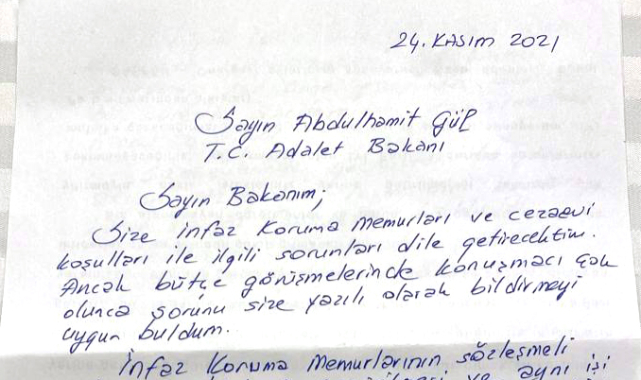 24. KASIM 2021
Sayın Abdulhamit GÜL
T.C. Adalet Bakanı
Sayın Bakanım;
Size infaz Koruma memurları ve cezaevi
koşulları ile ilgili sorunları dile getirecektim.
Ancak bütçe görüşmelerinde konuşmacı çok
olunca sorunu size yazılı olarak bildirmeyi
uygun buldum.
İnfaz Koruma Memurlarının sözleşmeli
ve aynı işi